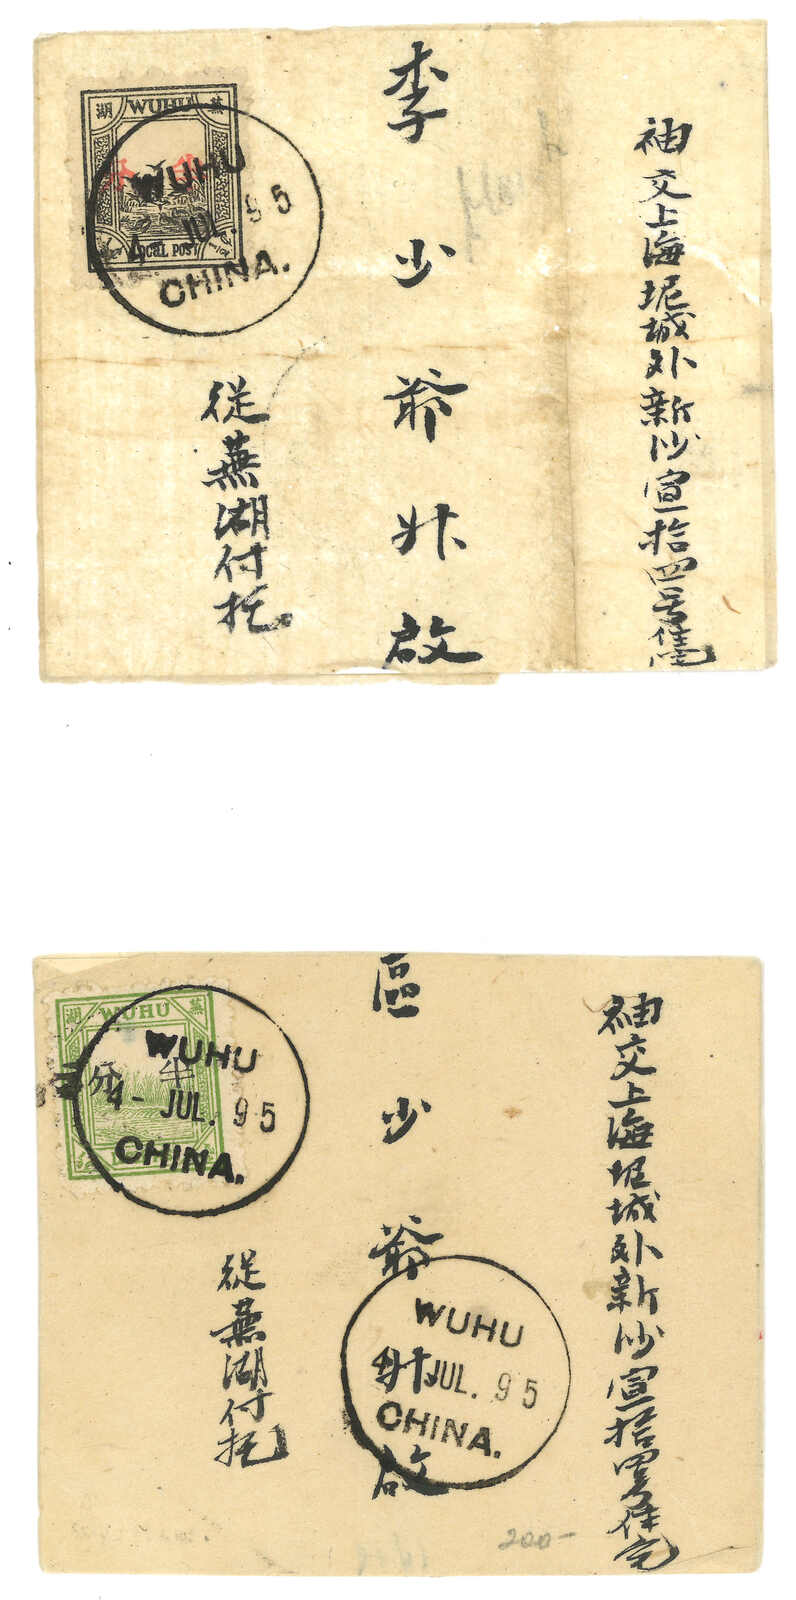 蕪 WUHU 湖
LOCAL POST
WUHU
4- JUL. 95
CHINA.
袖交上海坭城外新沙宣拾四号住宅
李少爺升啟
從蕪湖付托
蕪 WUHU 湖
半分
WUHU
4- JUL. 95
CHINA.
袖交上海坭城外新沙宣拾四号住宅
區少爺升啟
WUHU
JUL. 95
CHINA.
從蕪湖付托
200-